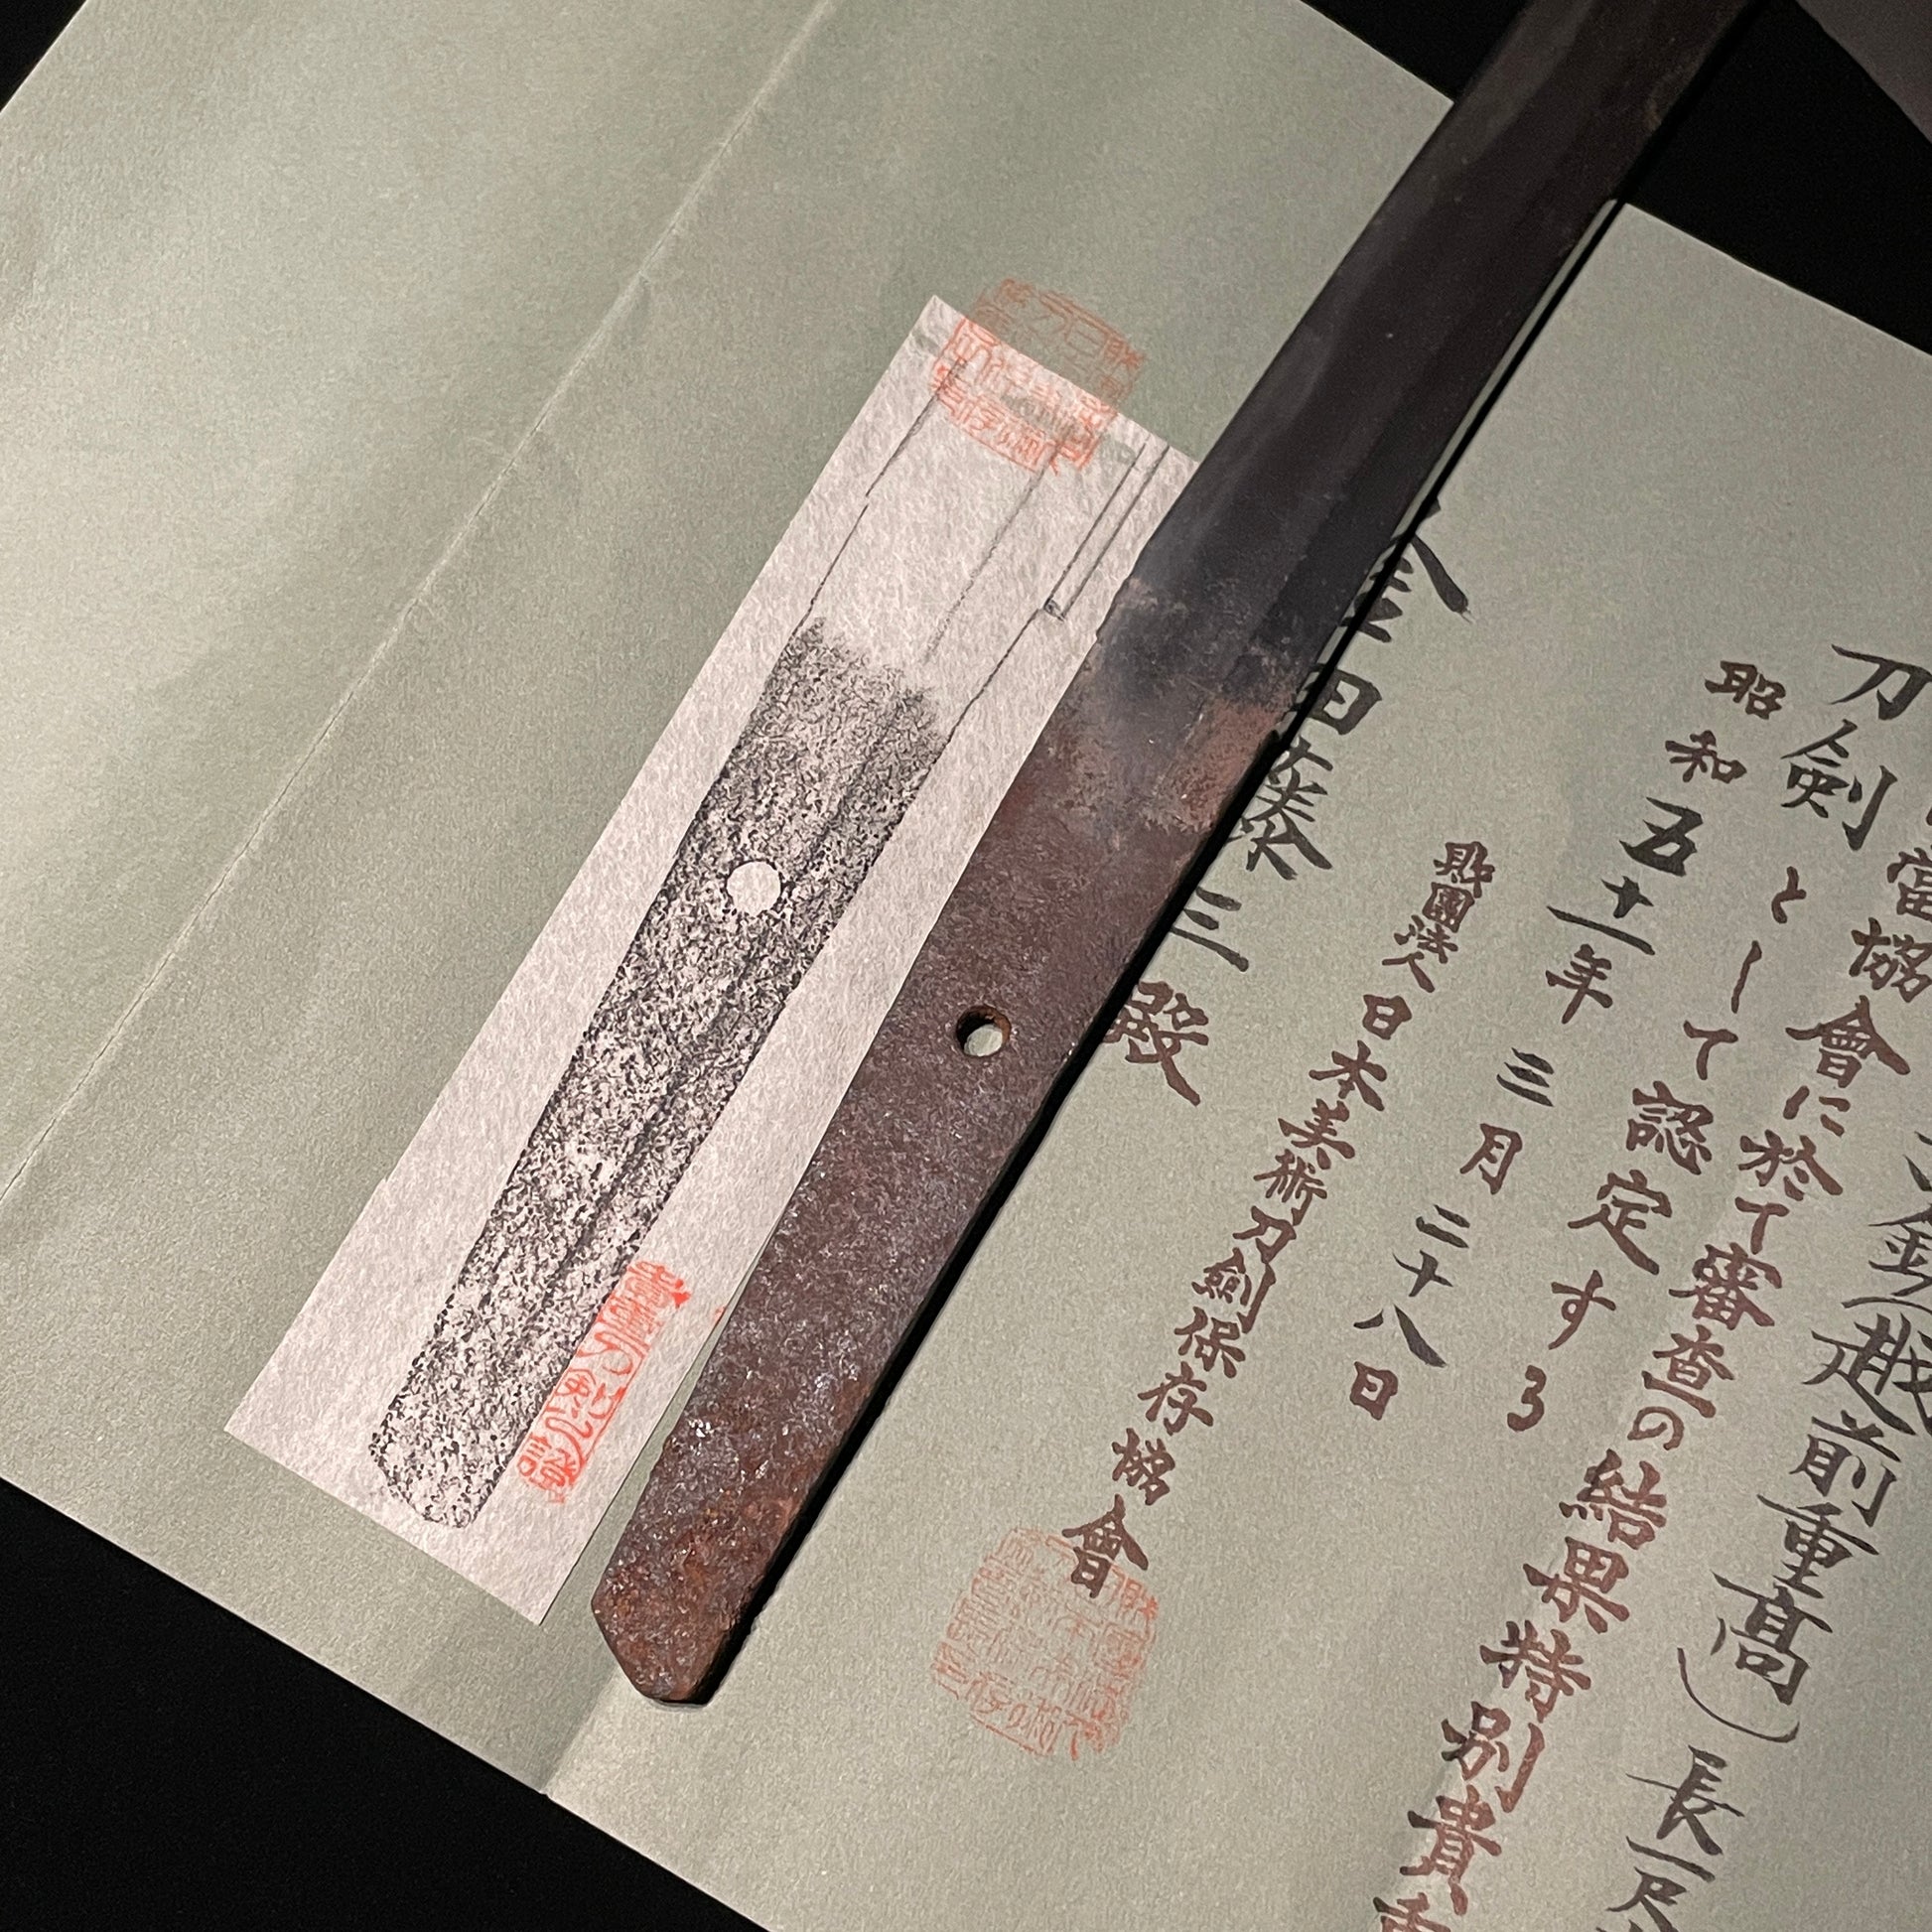 銘(越前重髙)長一尺
當協會に於て審査の結果特別貴重
刀剣として認定する
昭和五十一年三月二十八日
財團法人日本美術刀劍保存協會
金田三殿